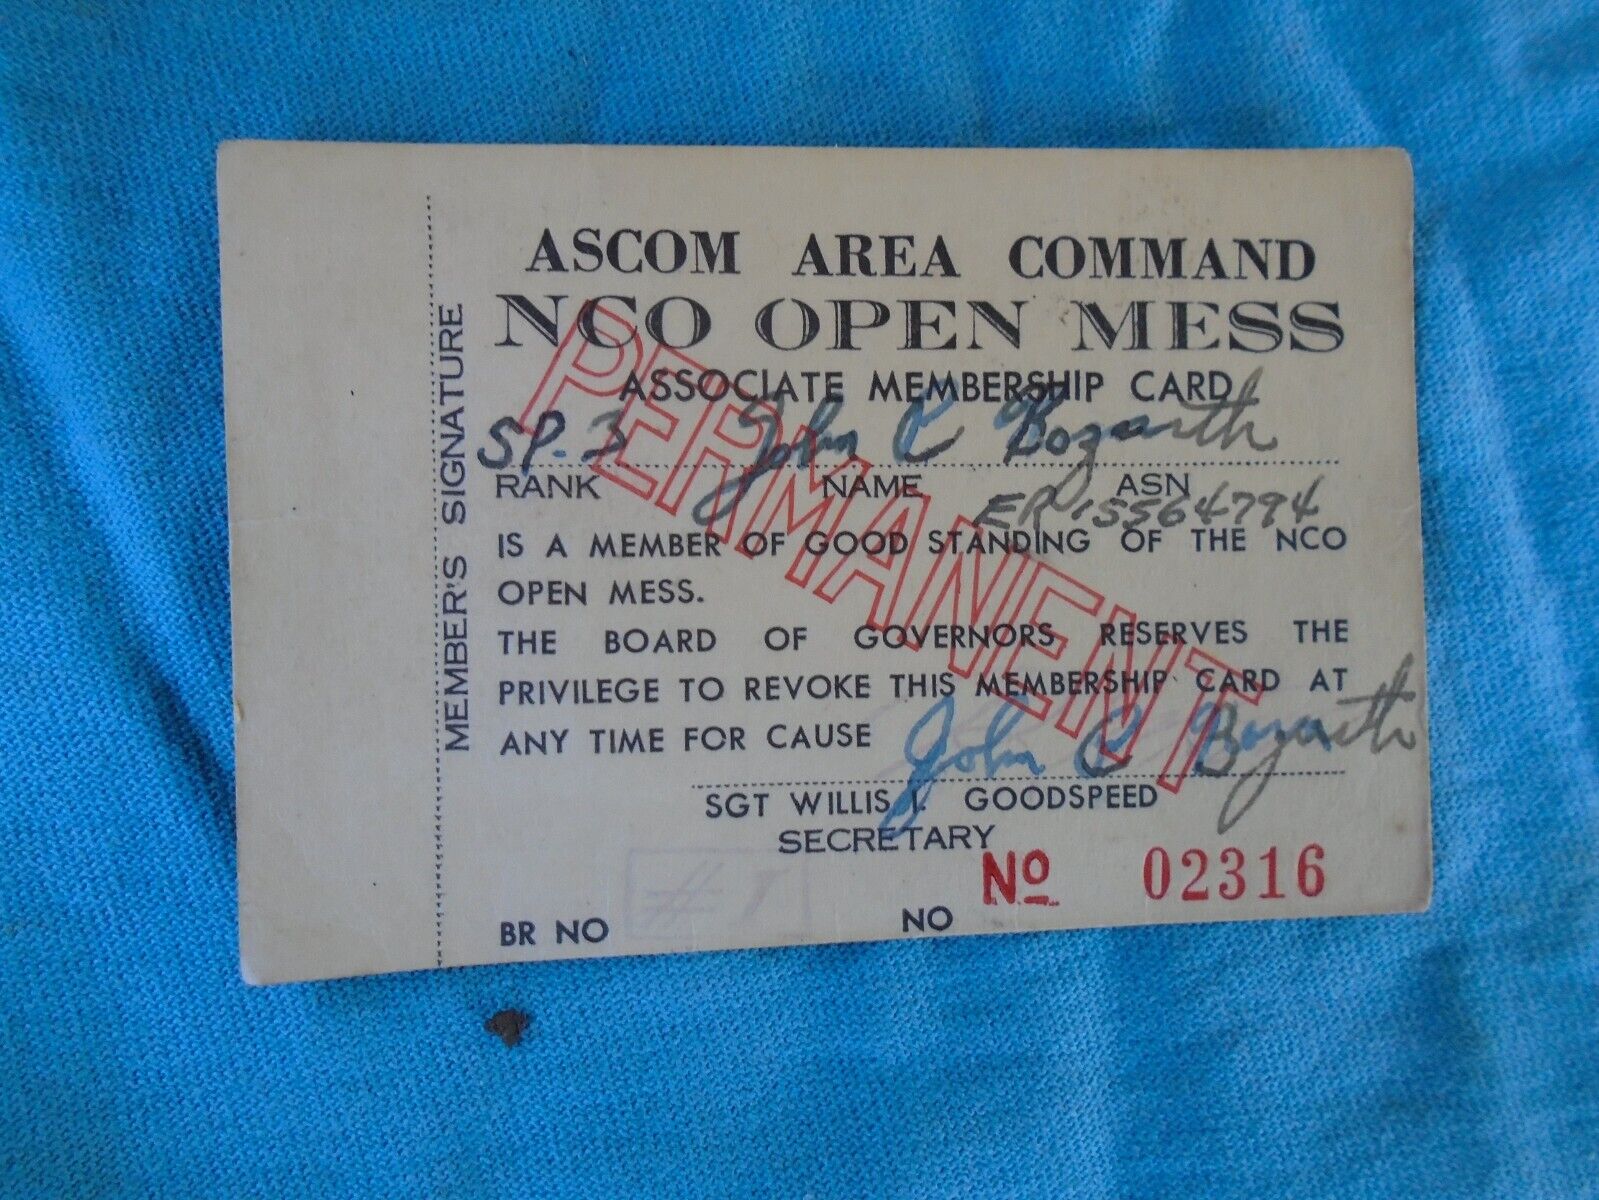 ASCOM AREA COMMAND
NCO OPEN MESS
ASSOCIATE MEMBERSHIP CARD
SP.3 John C Bozarth
RANK NAME ASN
ER 15564794
IS A MEMBER OF GOOD STANDING OF THE NCO
OPEN MESS.
THE BOARD OF GOVERNORS RESERVES THE
PRIVILEGE TO REVOKE THIS MEMBERSHIP CARD AT
ANY TIME FOR CAUSE
John C Bozarth
SGT WILLIS I. GOODSPEED
SECRETARY
No 02316
BR NO NO
PERMANENT
MEMBER'S SIGNATURE